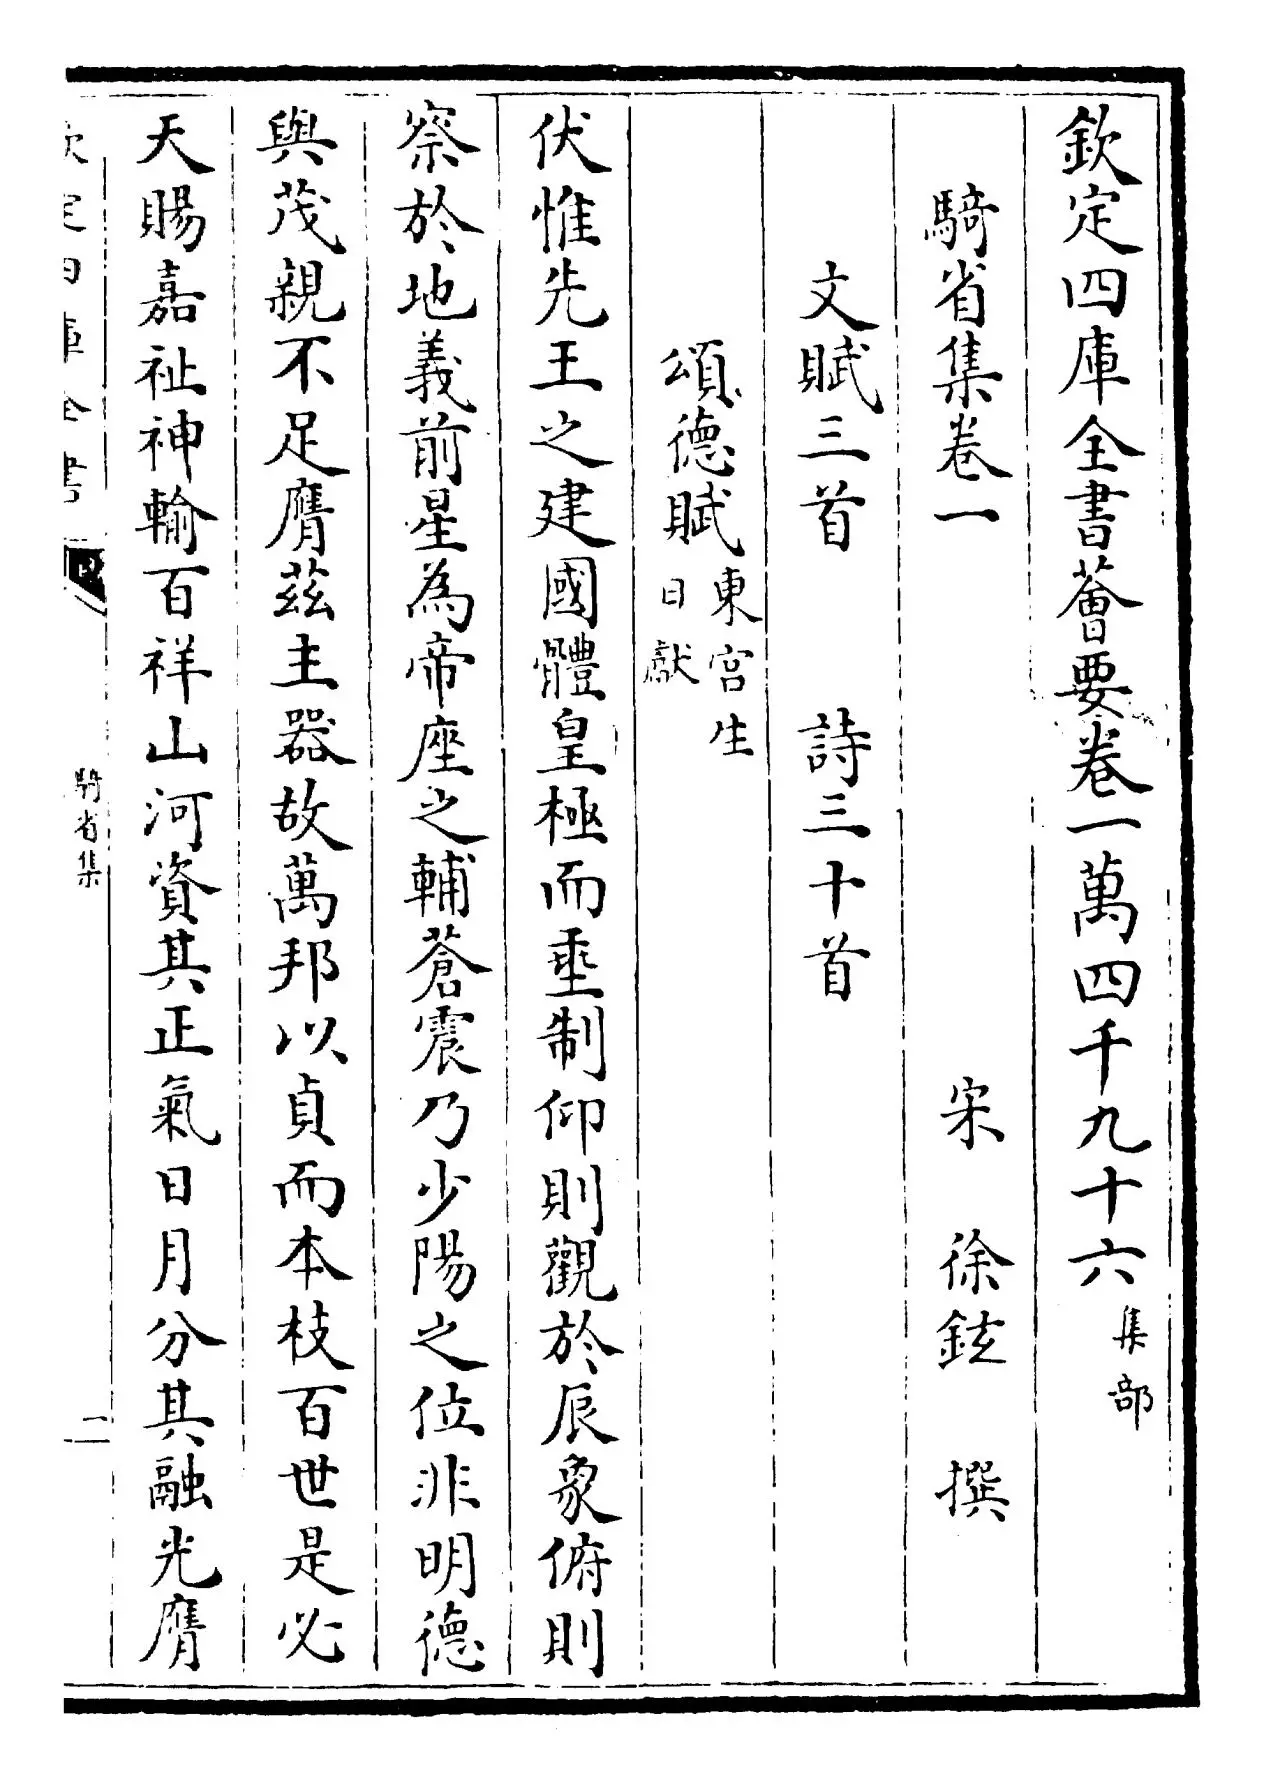 欽定四庫全書薈要卷一萬四千九十六集部
騎省集卷一 宋 徐鉉 撰
文賦三首 詩三十首
頌德賦東宮生日獻
伏惟先王之建國體皇極而垂制仰則觀於辰象俯則
察於地義前星為帝座之輔蒼震乃少陽之位非明德
與茂親不足膺茲主器故萬邦以貞而本枝百世是必
天賜嘉祉神輸百祥山河資其正氣日月分其融光膺
欽定四庫全書
騎省集
一